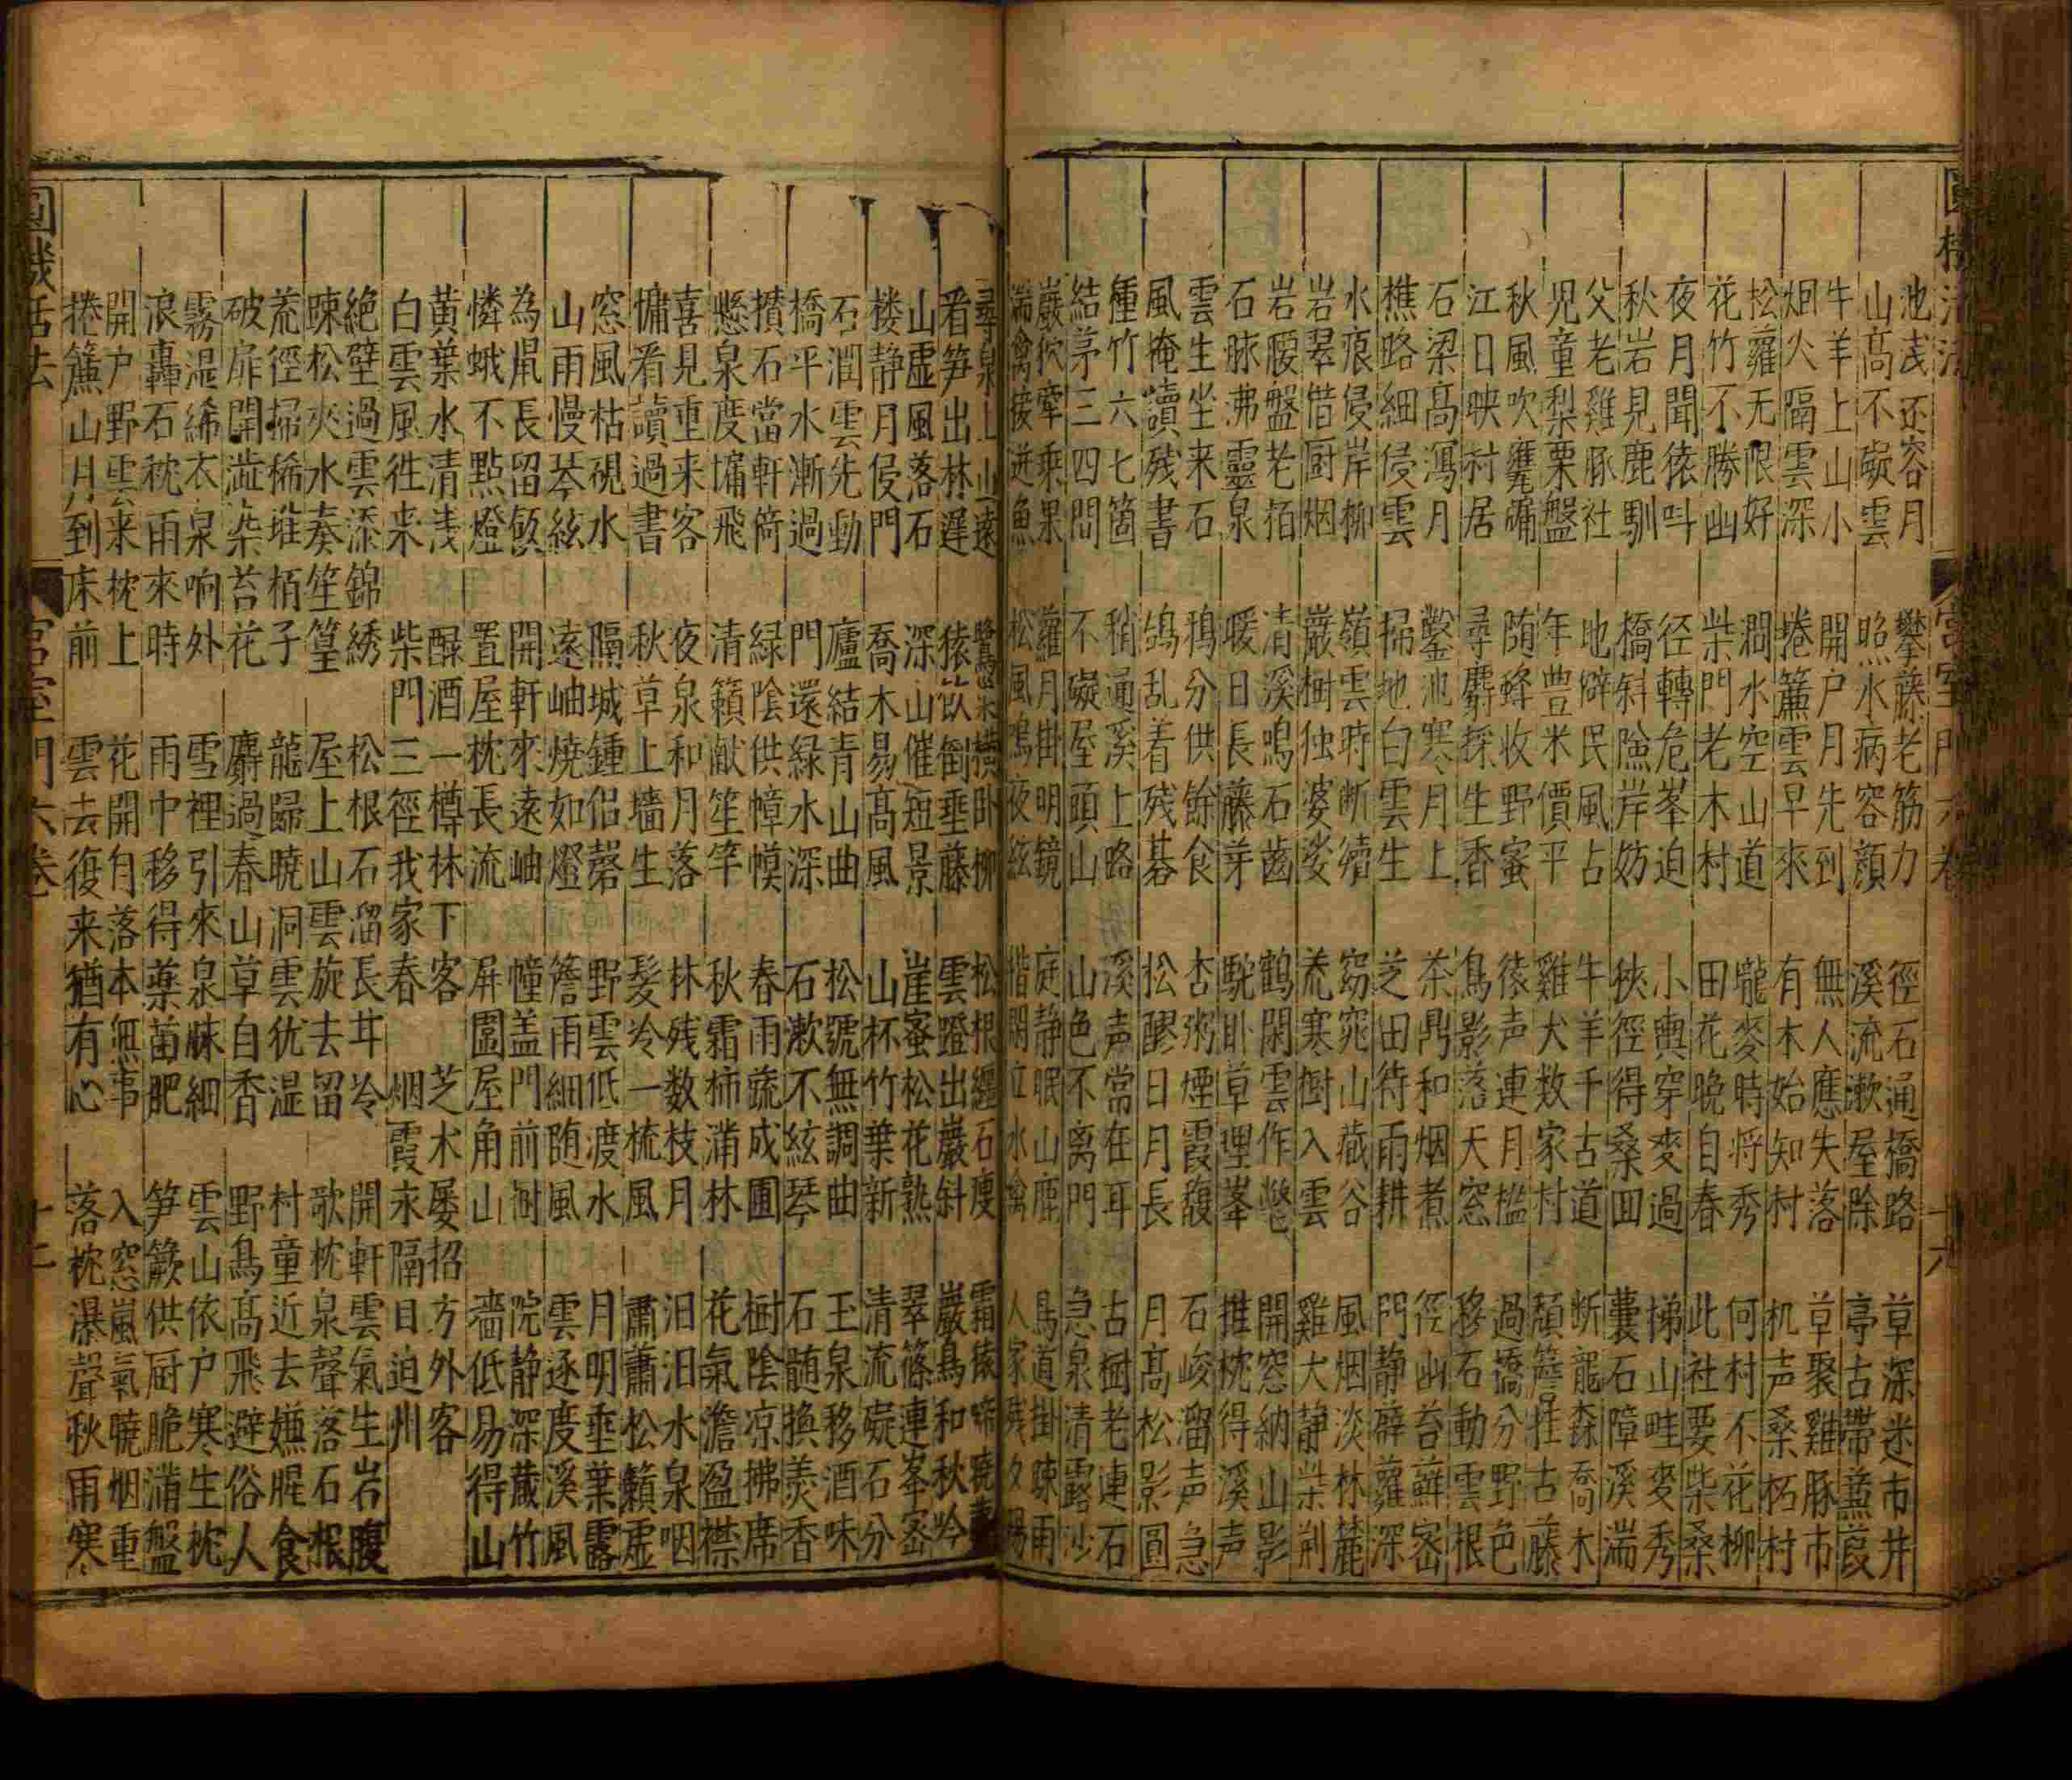 池浅还容月　攀藤老筋力　徑石通橋路　草深迷市井
山高不礙雲　照水病容顔　溪流漱屋除　亭古帶蒹葭
牛羊上山小　開户月先到　無人應失落　草聚雞豚市
烟火隔雲深　捲簾雲早來　有木始知村　机声桑柘村
松蘿无限好　澗水空山道　隴麥時将秀　何村不花柳
花竹不勝幽　柴門老木村　田花晚自春　此社要柴桑
夜月聞猿叫　径轉危峯迫　小輿穿麥過　梯山畦麥秀
秋岩見鹿馴　橋斜險岸妨　狹徑得桑囬　囊石障溪湍
父老雞豚社　地僻民風占　牛羊千古道　断龍森喬木
児童梨栗盤　年豊米價平　雞犬数家村　頹簷挂古藤
秋風吹甕牖　随蜂收野蜜　猿声連月檻　過橋分野色
江日映村居　尋麝採生香　鳥影落天窓　移石動雲根
石梁高瀉月　鑿池寒月上　茶鼎和烟煮　径幽苔蘚宻
樵路細侵雲　掃地白雲生　芝田待雨耕　門静薜蘿深
水痕侵岸柳　嶺雲時断續　窈窕山藏谷　風烟淡林麓
岩翠借厨烟　巖樹独婆娑　荒寒樹入雲　雞犬静柴荆
岩腰盤老栢　清溪鳴石齒　鶴閑雲作氅　開窓納山影
石脉沸靈泉　暖日長藤芽　駝卧草埋峯　推枕得溪声
雲生坐来石　鴉分供餘食　杏粥煙霞馥　石峻溜声急
風掩讀残書　鴿乱着残碁　松醪日月長　月高松影圓
種竹六七箇　稍通溪上路　溪声常在耳　古樹老連石
結茅三四間　不礙屋頭山　山色不离門　急泉清露沙
巖狖牽乘果　蘿月掛明鏡　庭静眠山鹿　鳥道掛踈雨
湍禽接迸魚　松風鳴夜絃　揩閑立水禽　人家残夕陽
尋泉上山遠　鷺憩横卧柳　松根纏石廋　霜猿啼曉
看笋出林遅　猿飲倒垂藤　雲蹬出巖斜　巖鳥和秋吟
山虚風落石　深山催短景　崖蜜松花熟　翠篠連峯宻
楼静月侵門　喬木易高風　山杯竹葉新　清流礙石分
石澗雲先動　廬結青山曲　松號無調曲　玉泉移酒味
橋平水漸過　門還緑水深　石漱不絃琴　石髄換羙香
攢石當軒倚　緑陰供幛幙　春雨蔬成圃　樹陰凉拂席
懸泉度墉飛　清籟献笙竽　秋霜柿滿林　花氣澹盈襟
喜見重来客　夜泉和月落　林残数枝月　汨汨水泉咽
慵看讀過書　秋草上墻生　髪冷一梳風　蕭蕭松籟虚
窓風枯硯水　隔城鍾侣磬　野雲低渡水　月明垂葉露
山雨慢琴絃　遠岫燒如燈　簷雨細随風　雲逐度溪風
為鼠長留飯　開軒來遠岫　幢盖門前樹　院静深蔵竹
憐蛾不點燈　置屋枕長流　屏圖屋角山　牆低易得山
黄葉水清浅　醒酒一樽林下客　芝术屡招方外客
白雲風徃来　柴門三徑我家春　烟霞永隔日迫州
絶壁過雲添錦綉　松根石溜長茸冷　開軒雲氣生岩腹
踈松夾水奏笙篁　屋上山雲旋去留　歌枕泉聲落石根
荒徑掃稀堆栢子　龍歸曉洞雲犹湿　村童近去嫌腥食
破扉開澁染苔花　麝過春山草自香　野鳥高飛避俗人
霧湿絺衣泉响外　雪裡引來泉脉細　雲山依户寒生枕
浪轟石枕雨來時　雨中移得藥苗肥　笋簌供厨脆滿盤
開户野雲来枕上　花開自落本無事　入窓嵐氣曉烟重
捲簾山月到床前　雲去復来猶有心　落枕瀑聲秋雨寒
宫室門六卷
宫室門六卷
十六